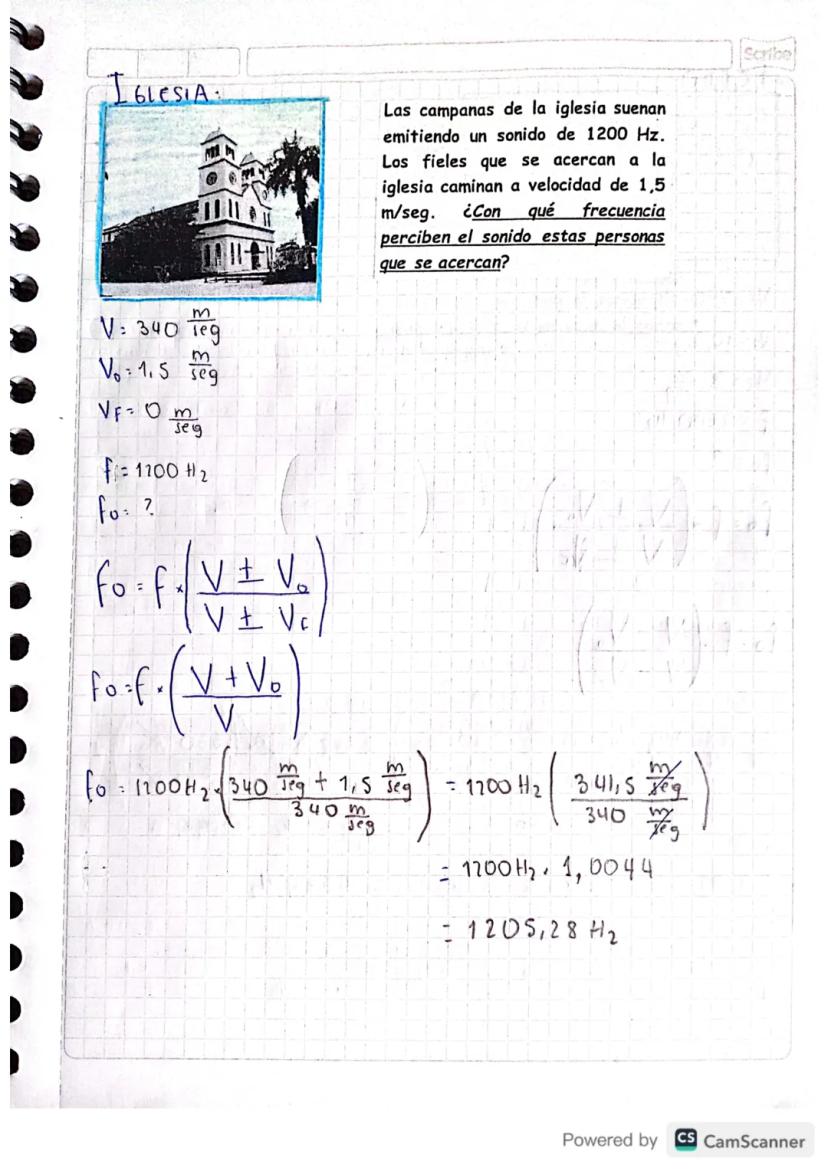 Scribe
IGLESIA:
Las campanas de la iglesia suenan
emitiendo un sonido de 1200 Hz.
Los fieles que se acercan a la
iglesia caminan a velocidad de 1,5
m/seg. ¿Con qué frecuencia
perciben el sonido estas personas
que se acercan?
V: 340 m/seg
Vo: 1,5 m/seg
VF= 0 m/seg
f: = 1200 Hz
fo: ?
fo = f × (V ± Vo / V ± Vf)
fo = f × (V + Vo / V)
fo = 1200 Hz × (340 m/seg + 1,5 m/seg / 340 m/seg) = 1200 Hz (341,5 m/seg / 340 m/seg)
= 1200 Hz . 1,0044
= 1205,28 Hz
Powered by CS CamScanner